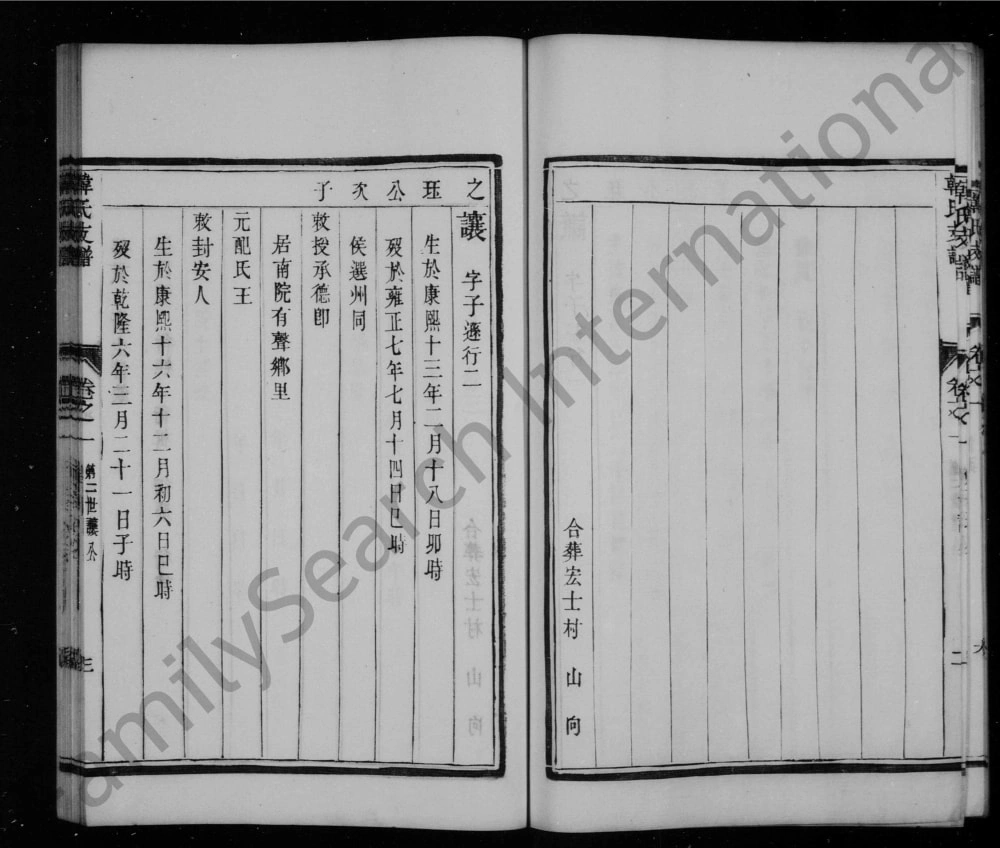 韓氏支譜
卷之一
二
合葬宏士村 山 向
之讓 字子遜行二
珏 生於康熙十三年二月十八日卯時
公 歿於雍正七年七月十四日巳時
次 侯選州同
子 敕授承德郎
居南院有聲鄉里
元配氏王
敕封安人
生於康熙十六年十二月初六日巳時
歿於乾隆六年三月二十一日子時
韓氏支譜
卷之一
第二世讓公
三
FamilySearch International